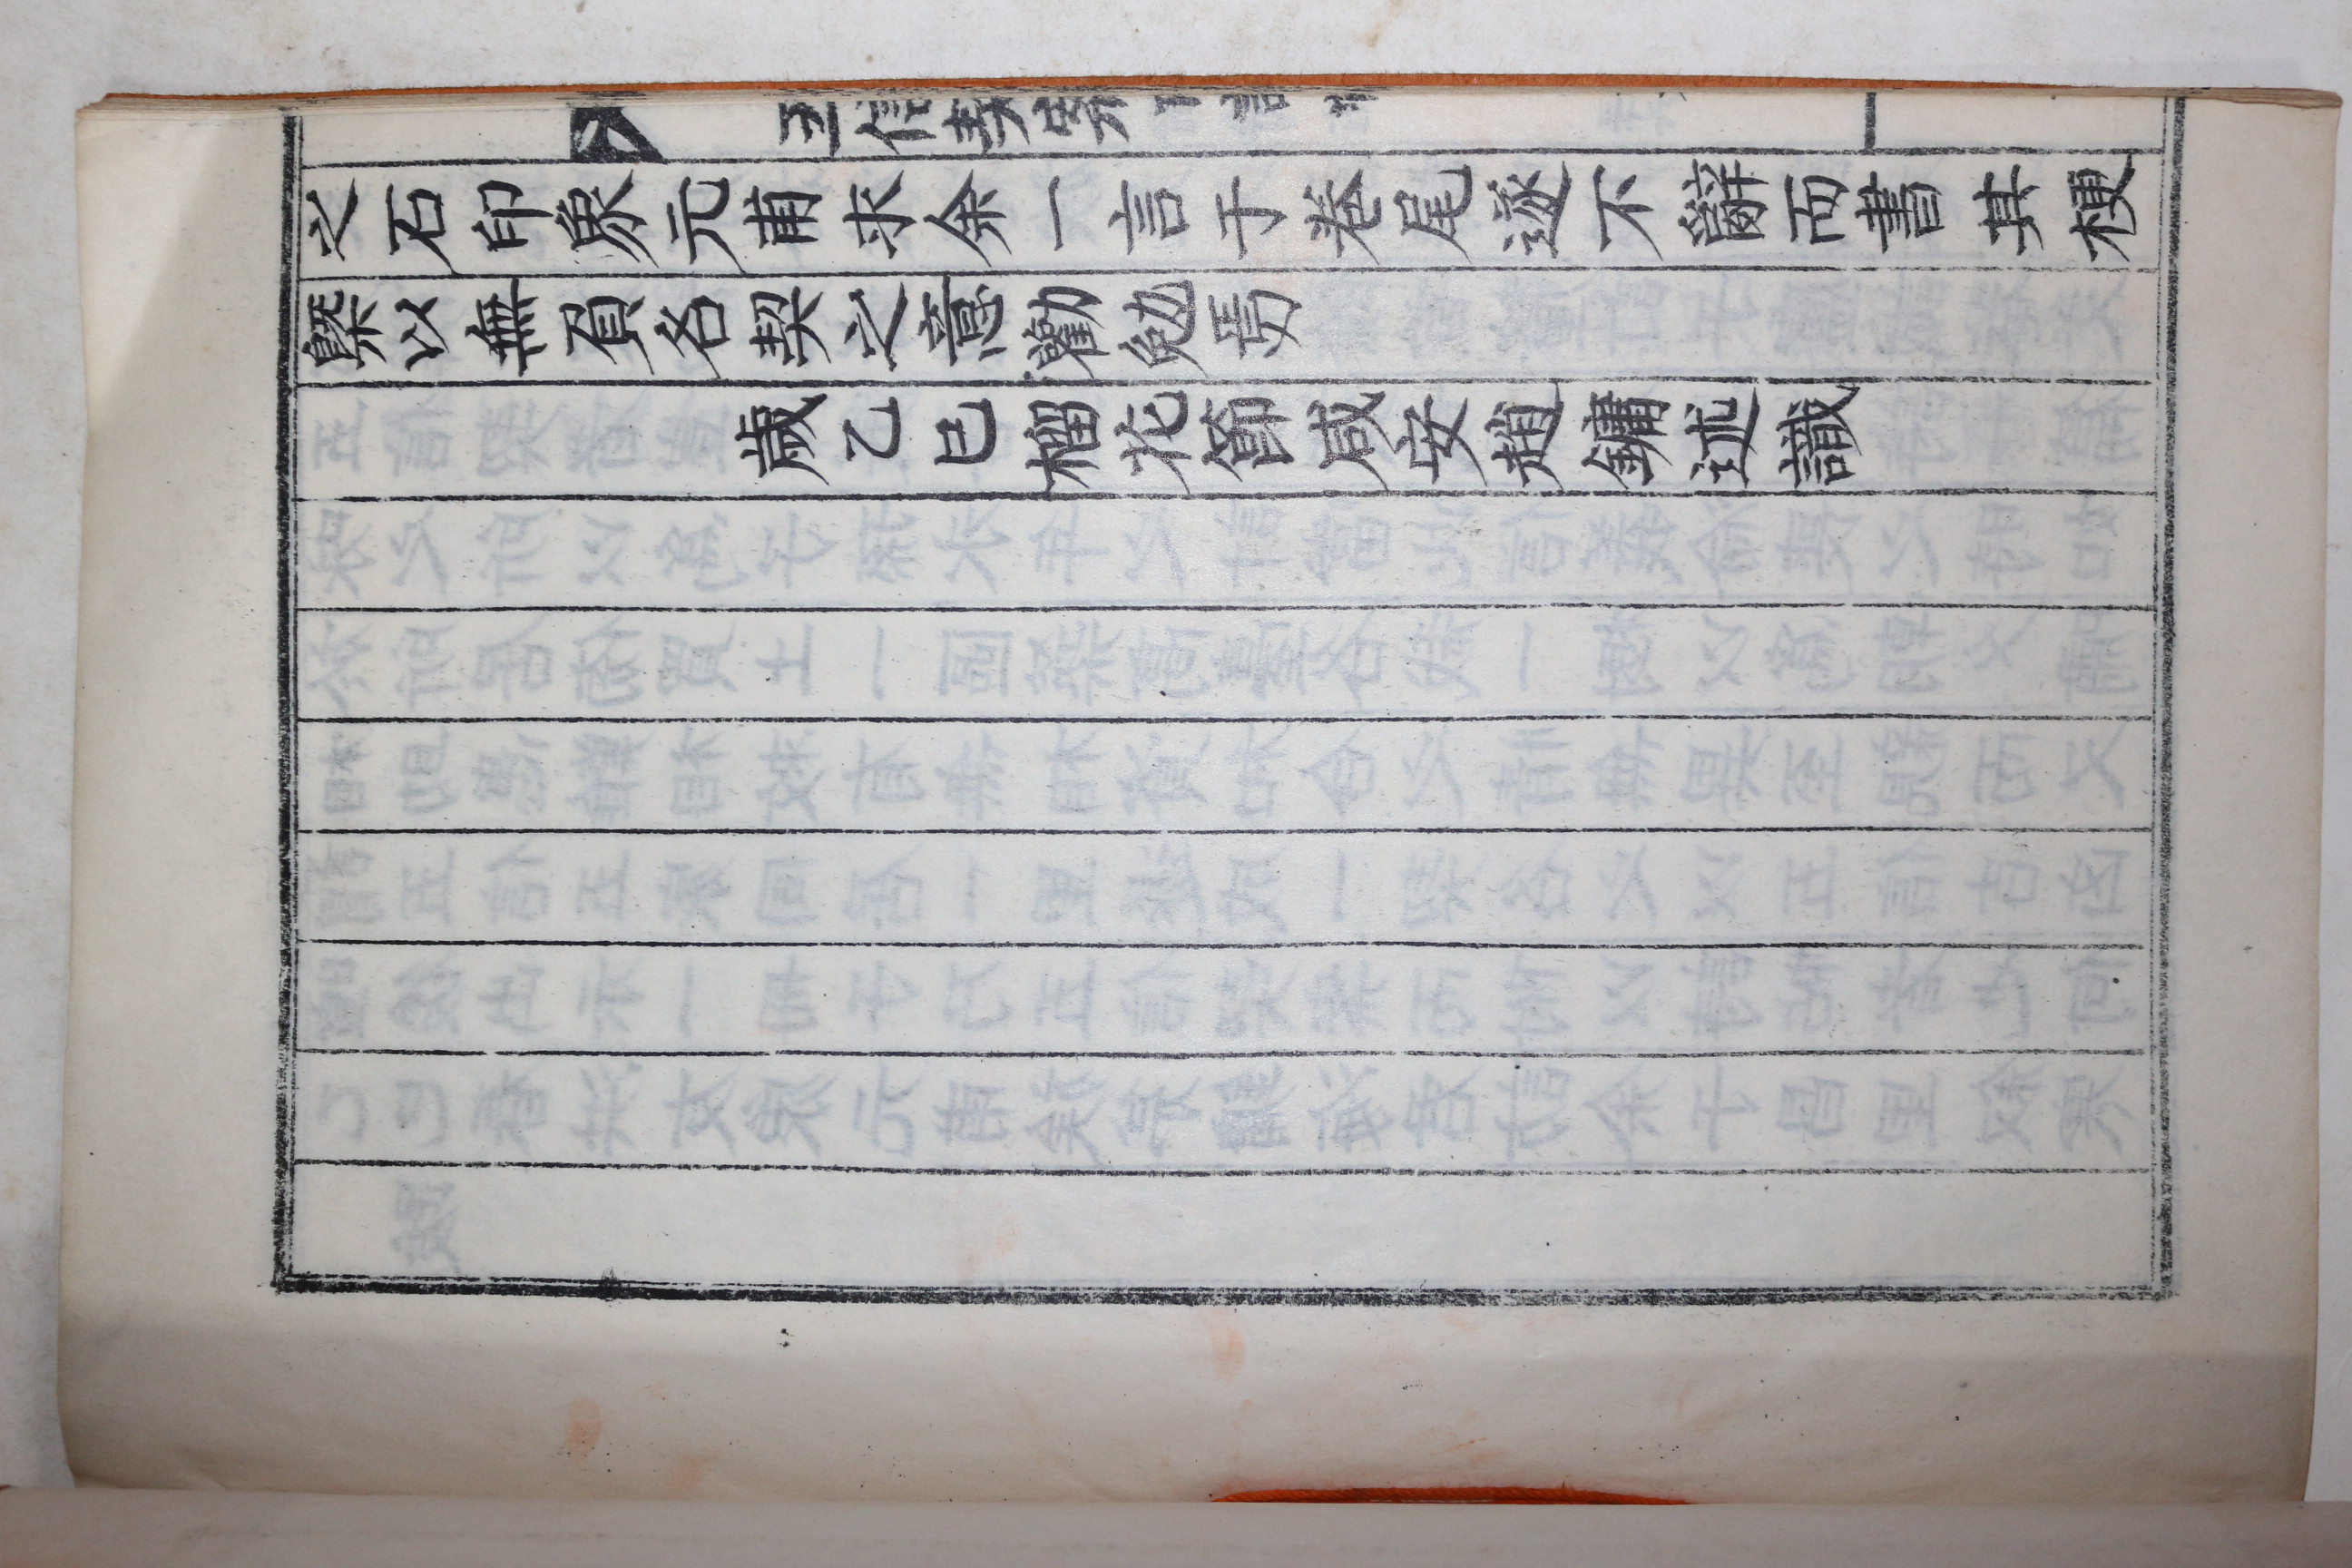 之石印象元甫求余一言于卷尾遂不辭而書其梗
槩以無負名契之意勸勉焉
歲乙巳榴花節咸安趙鏞述識
五信契案